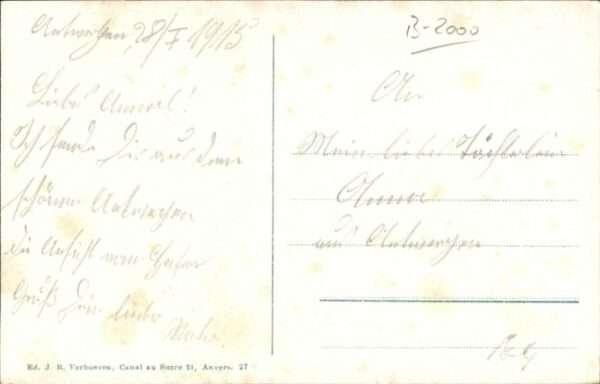 Antwerpen, 28/I 1915
Liebes
Ich sende Dir aus dem
schönen Antwerpen
die Ansicht vom Hafen
Gruß Dein lieber
B-2000
An
Mein liebes Töchterlein
Anna
aus Antwerpen
Ed. J. B. Verhoeven, Canal au Sucre 21, Anvers. 27